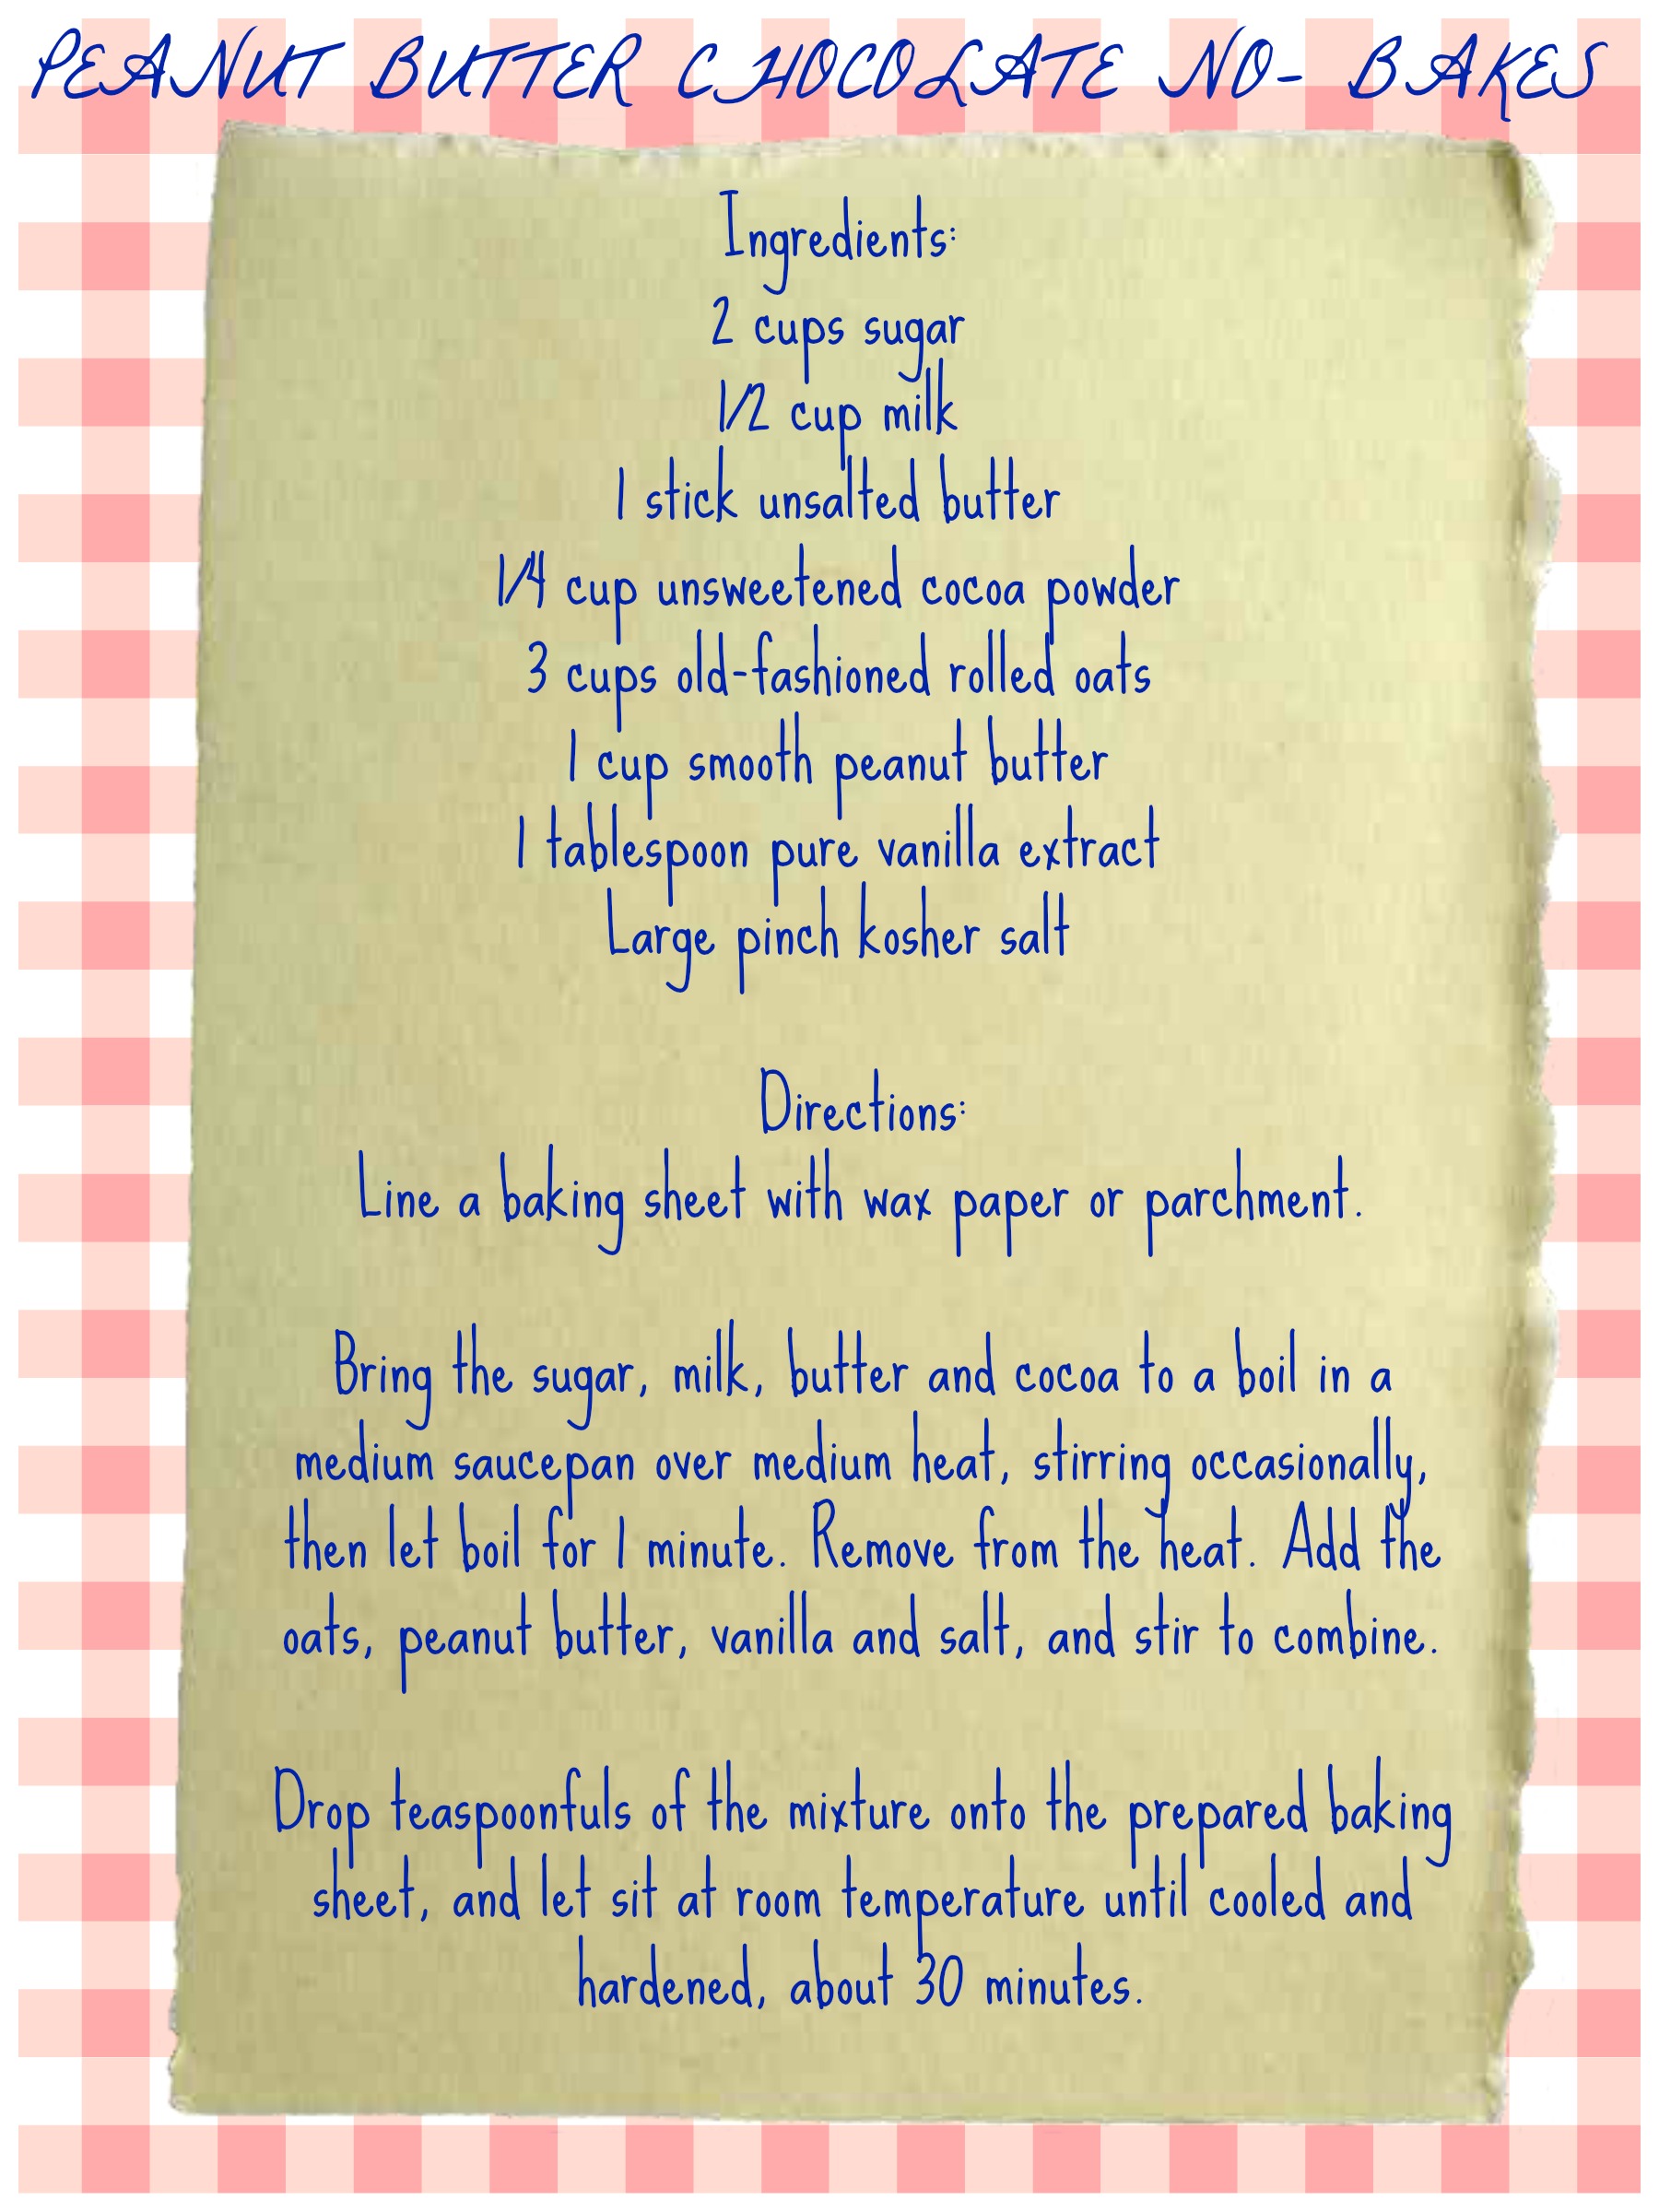 PEANUT BUTTER CHOCOLATE NO- BAKES
Ingredients:
2 cups sugar
1/2 cup milk
1 stick unsalted butter
1/4 cup unsweetened cocoa powder
3 cups old-fashioned rolled oats
1 cup smooth peanut butter
1 tablespoon pure vanilla extract
Large pinch kosher salt
Directions:
Line a baking sheet with wax paper or parchment.
Bring the sugar, milk, butter and cocoa to a boil in a
medium saucepan over medium heat, stirring occasionally,
then let boil for 1 minute. Remove from the heat. Add the
oats, peanut butter, vanilla and salt, and stir to combine.
Drop teaspoonfuls of the mixture onto the prepared baking
sheet, and let sit at room temperature until cooled and
hardened, about 30 minutes.